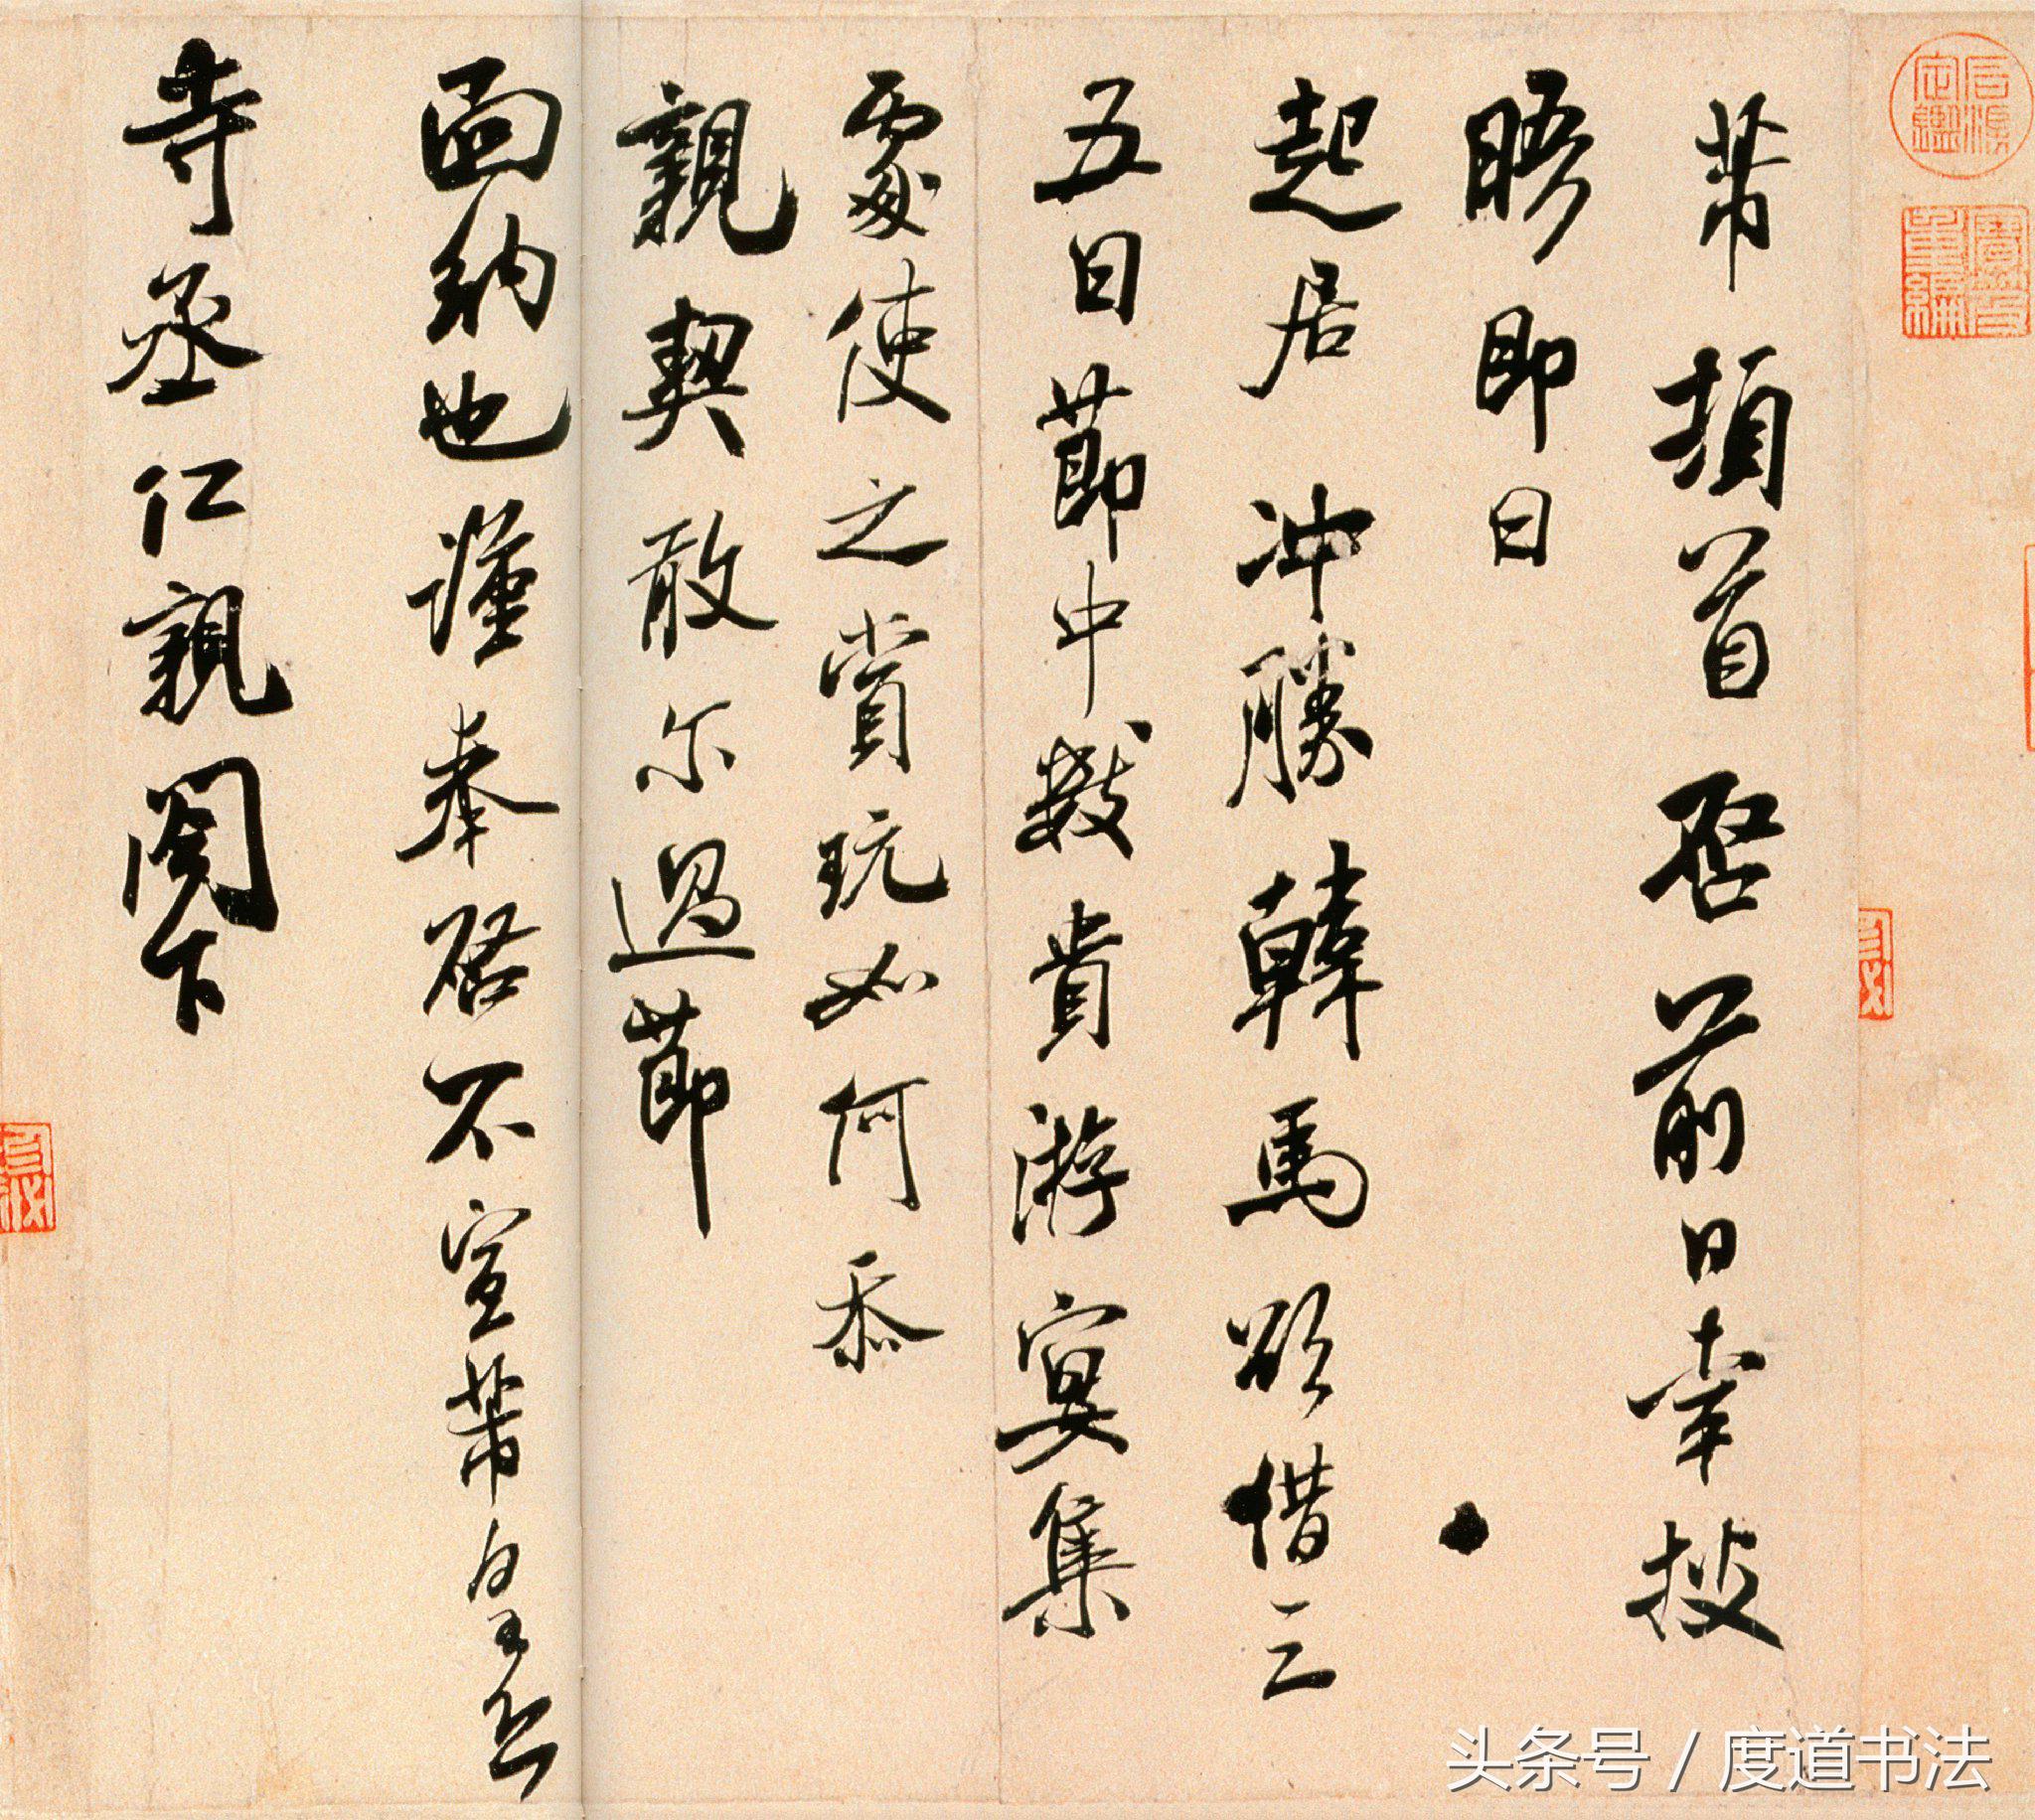 芾頓首啓前日幸披
晤即日
起居冲勝韓馬欲借三
五日節中數貴游宴集
處使之賞玩如何忝
親契敢尔過節
面納也謹奉啓不宣芾皇恐
寺丞仁親閣下
头条号 / 度道书法